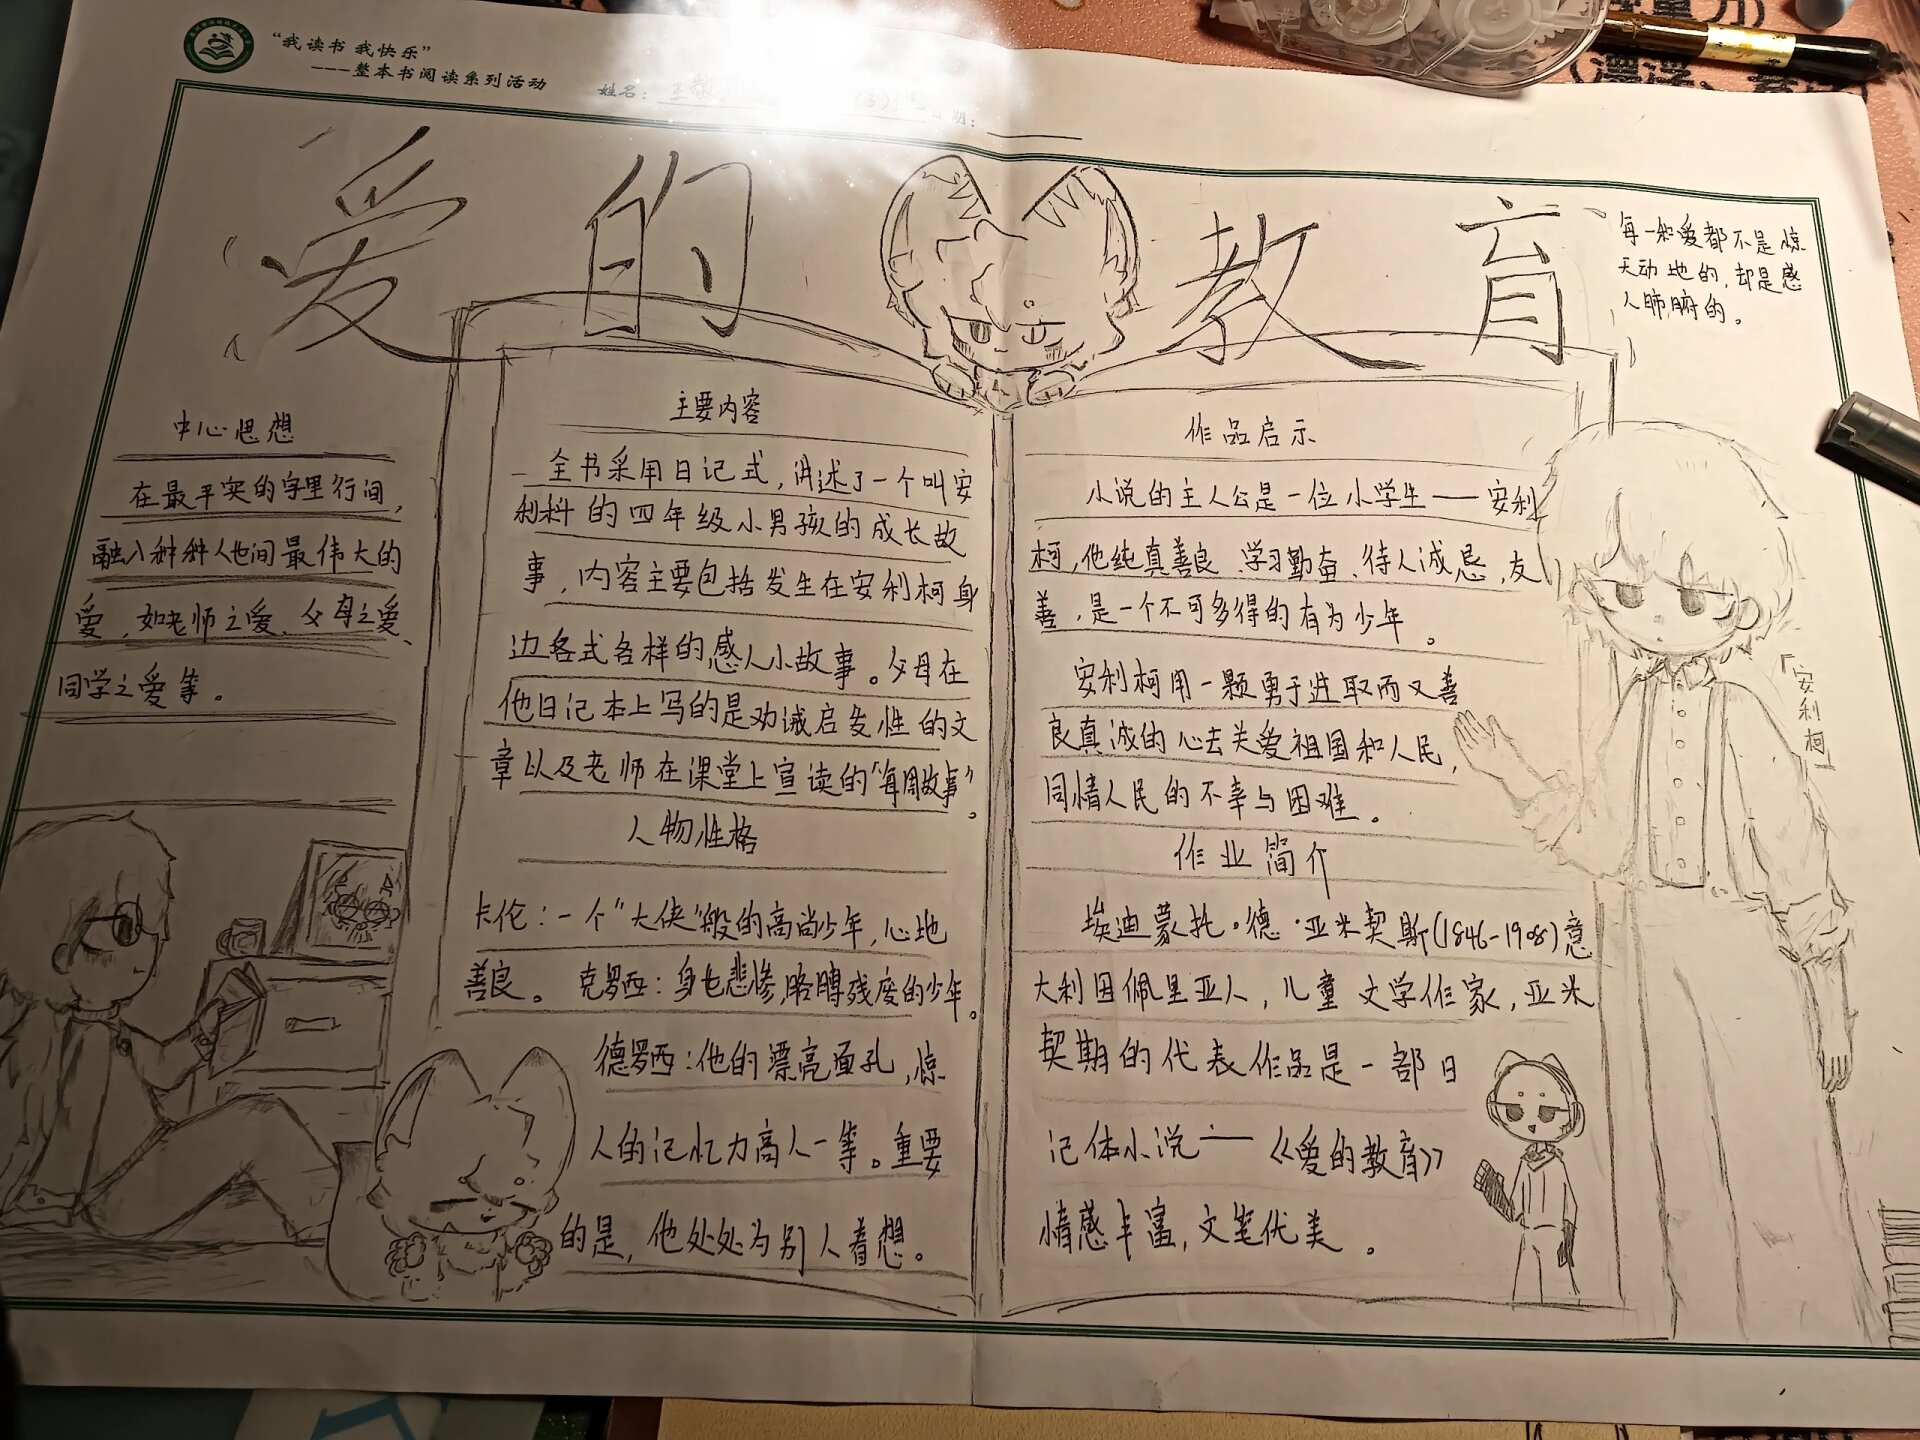 “我读书 我快乐”
---整本书阅读系列活动
姓名：王敬
(3)班
日期：
爱的教育
每一种爱都不是惊
天动地的，却是感
人肺腑的。
中心思想
在最平实的字里行间，
融入种种人世间最伟大的
爱，如老师之爱、父母之爱、
同学之爱等。
主要内容
全书采用日记式，讲述了一个叫安
利科的四年级小男孩的成长故
事，内容主要包括发生在安利柯身
边各式各样的感人小故事。父母在
他日记本上写的是劝诫启发性的文
章以及老师在课堂上宣读的“每周故事”。
人物性格
卡伦：一个“大侠”般的高尚少年，心地
善良。 克罗西：身世悲惨，胳膊残废的少年。
德罗西：他的漂亮面孔，惊
人的记忆力高人一等。重要
的是，他处处为别人着想。
作品启示
小说的主人公是一位小学生——安利
柯，他纯真善良、学习勤奋、待人诚恳，友
善，是一个不可多得的有为少年。
安利柯用一颗勇于进取而又善
良真诚的心去关爱祖国和人民，
同情人民的不幸与困难。
作业简介
埃迪蒙托·德·亚米契斯(1846-1908)意
大利因佩里亚人，儿童文学作家，亚米
契期的代表作品是一部日
记体小说——《爱的教育》
情感丰富，文笔优美。
「安利柯」